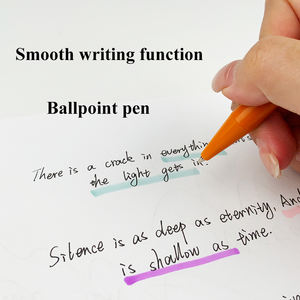 Smooth writing function
Ballpoint pen
There is a crack in everything
the light gets in
Silence is as deep as eternity, And
is shallow as time.